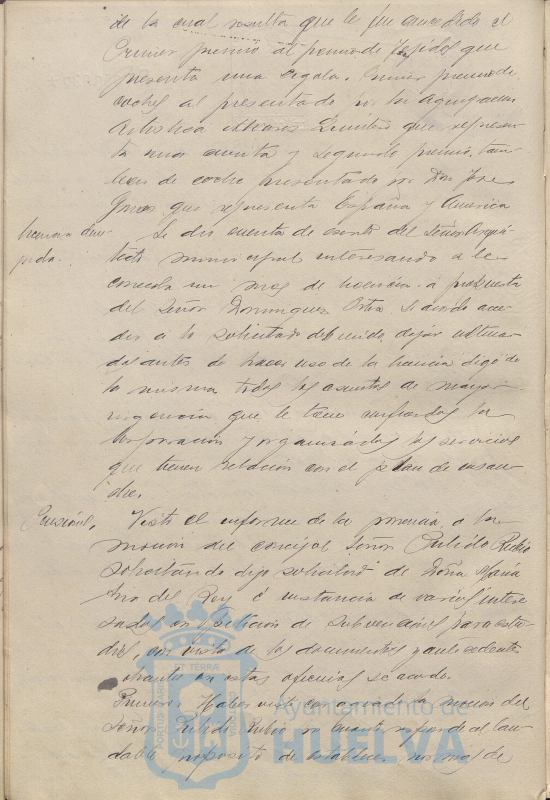 de la cual resulta que le fue concedido el
Primer premio al premio de Tejidos que
presenta una regata. Primer premio de
coches al presentado por la Agrupación
Artistica Alvarez Quintero que represen-
ta una carreta y segundo premio, tam-
bien de coche presentado por Don Jose
que representa España y America
Licencia
Se dió cuenta de escrito del Señor Arqui-
tecto municipal interesando se le
conceda un mes de licencia. a propuesta
del Señor Dominguez Ortiz se acordo acce-
der a lo solicitado debiendo dejar ultima-
dos antes de hacer uso de la licencia digo de
la misma todos los asuntos de mayor
urgencia que le tiene confiados la
Corporación y organizados los servicios
que tienen relación con el plan de ensan-
che.
Visto el informe de la ponencia a la
moción del concejal Señor Pulido Rubio
solicitando digo solicitud de Doña Maria
Ana del Rey é instancia de varios intere-
sados en petición de subvenciones para estu-
dios, con vista de los documentos y antecedentes
obrantes en estas oficinas se acordo.
Primero: Haber visto con agrado la mocion del
Señor Pulido Rubio en cuanto responde al lau-
dable proposito de establecer normas de
PORTUS MARIS ET TERRÆ CUSTODIA
Ayuntamiento de
HUELVA